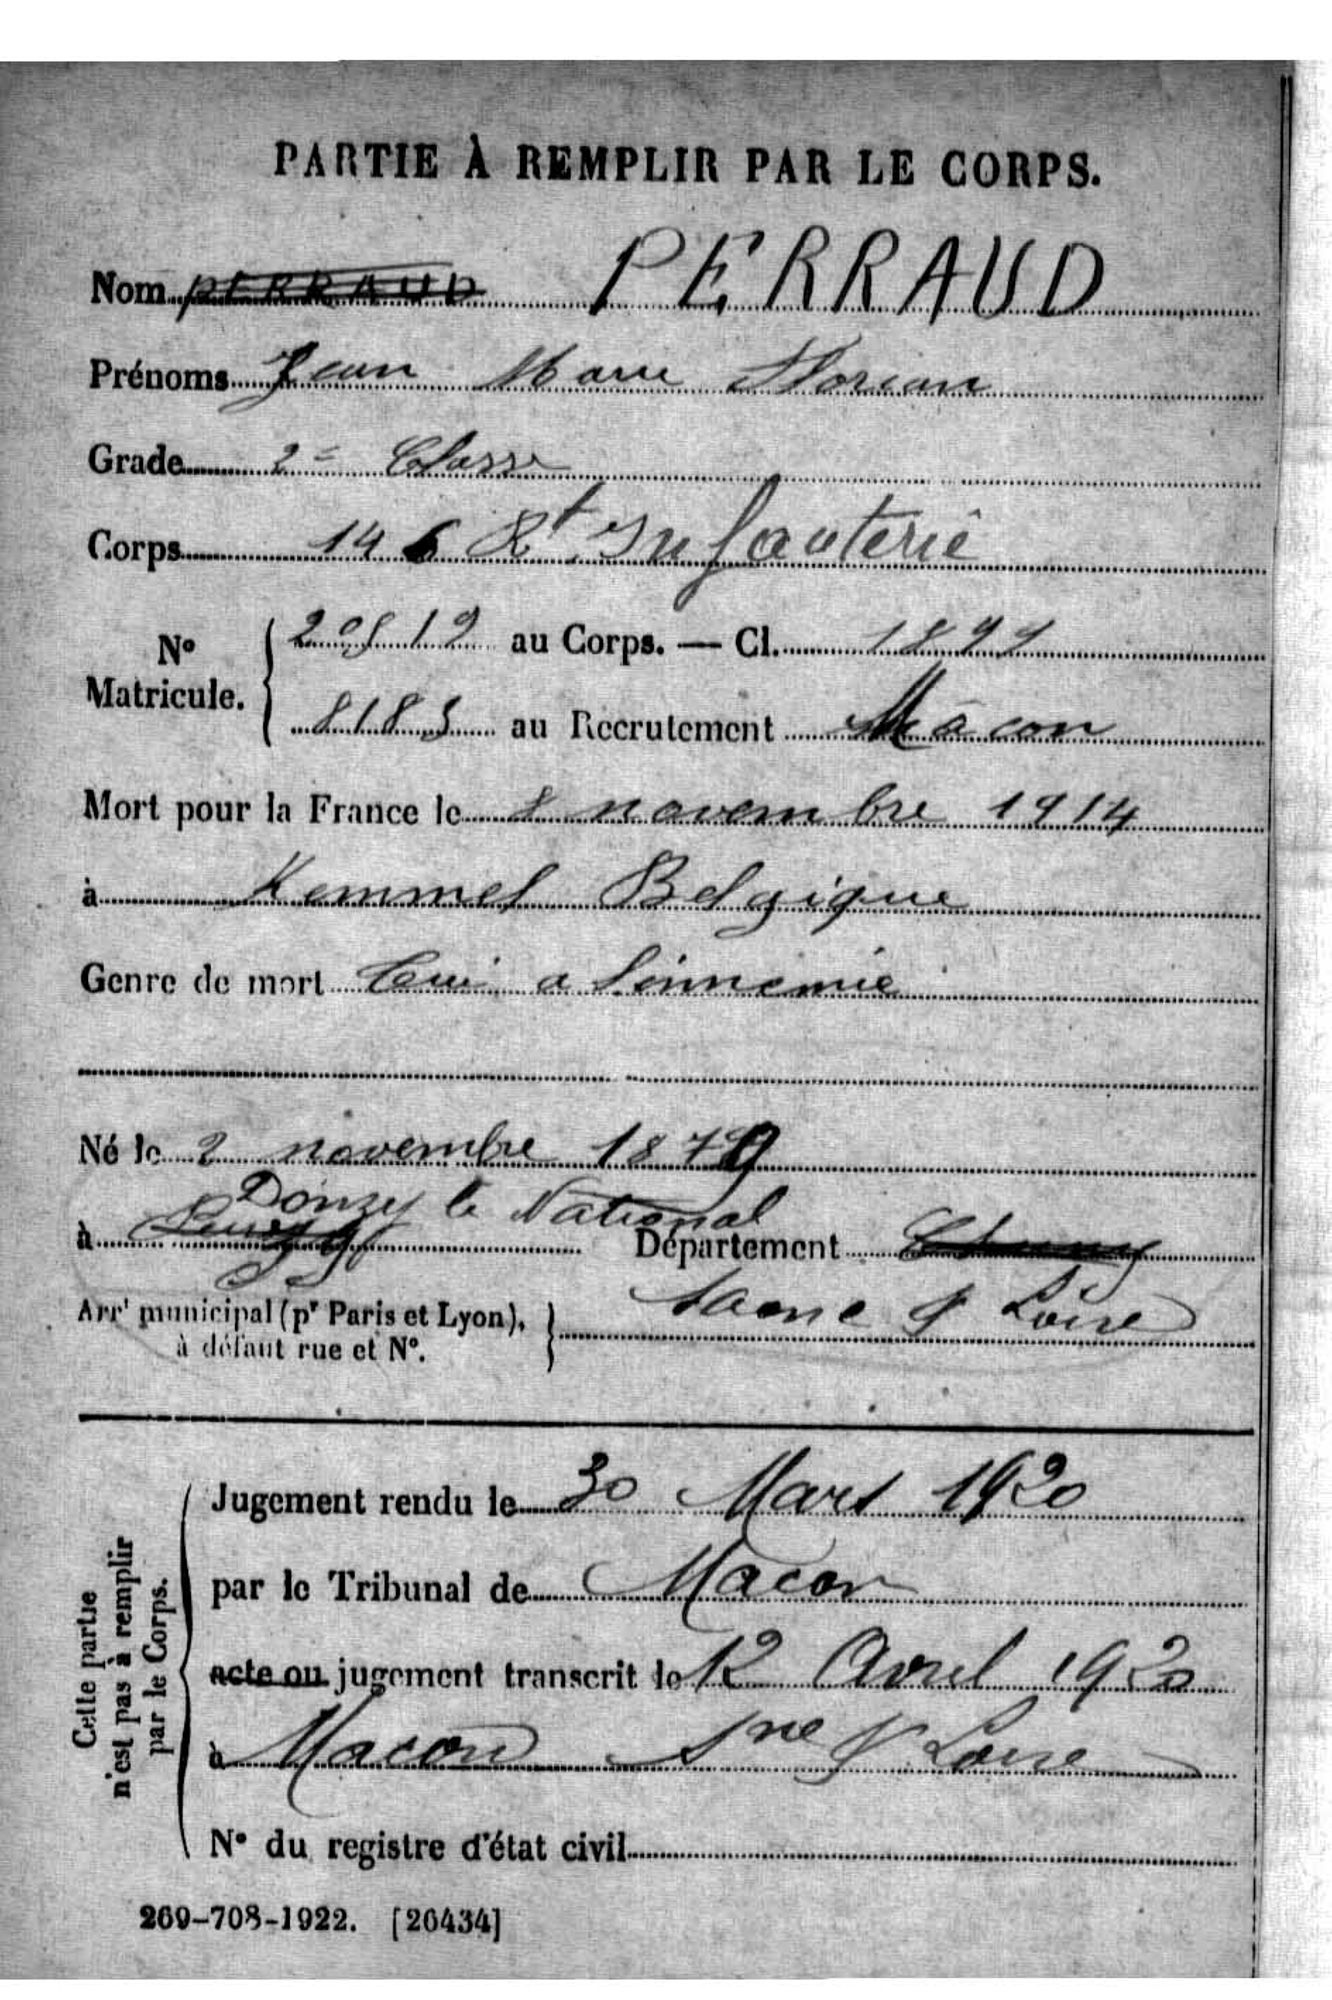 PARTIE À REMPLIR PAR LE CORPS.
Nom PERRAUD PERRAUD
Prénoms Jean Marie Florian
Grade 2e Classe
Corps 146 Rt Infanterie
No Matricule. 20512 au Corps. — Cl. 1899
8185 au Recrutement Mâcon
Mort pour la France le 8 novembre 1914
à Kemmel Belgique
Genre de mort Tué a l'innemie
Né le 2 novembre 1879
Donzy le National
à Département Cluny
Arrt municipal (pr Paris et Lyon), à défaut rue et No. Saone & Loire
Cette partie n'est pas à remplir par le Corps.
Jugement rendu le 30 Mars 1920
par le Tribunal de Macon
acte ou jugement transcrit le 12 Avril 1920
à Macon Sne & Loire
No du registre d'état civil
269-708-1922. [26434]